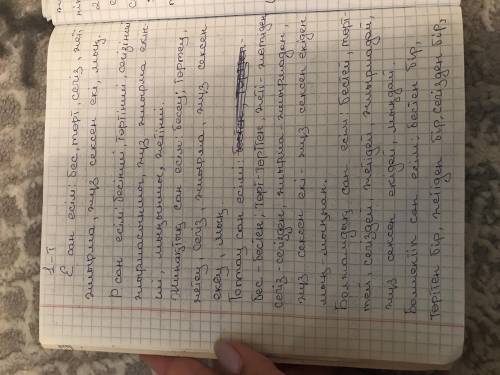 1-т
Е сан есімі: бес, төрт, сегіз, жеті
жиырма, жүз сексен екі, мың.
Р сан есімі: бесінші, төртінші, сегізінші
жиырмасыншы, жүз жиырма екін
ші, мыңыншы, жетінші.
Жинақтық сан есімі: бесеу, төртеу,
жетеу, сегіз, жиырма, жүз сексен
екеу, мың
Топтау сан есімі:
бес-бестен, төрт-төрттен, жеті-жетіден
сегіз-сегізден, жиырма-жиырмадан,
жүз сексен екі-жүз сексен екіден
мың-мыңнан.
Болжалдық сан есімі: бестей, төрт-
тей, сегіздей, жетідей, жиырмадай,
жүз сексен екідей, мыңдай.
Бөлшектік сан есімі: бестен бір,
төрттен бір, жетіден бір, сегізден бір,